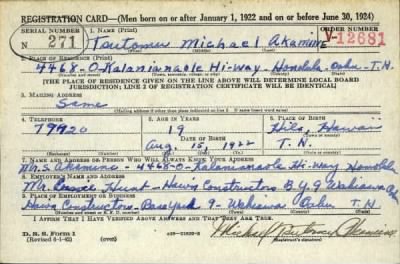 REGISTRATION CARD—(Men born on or after January 1, 1922 and on or before June 30, 1924)
SERIAL NUMBER
1. NAME (Print)
ORDER NUMBER
N 271
Tsutomu Michael Akamine
V-12681
2. PLACE OF RESIDENCE (Print)
4468-O-Kalanianaole Hi-way-Honolulu Oahu-T.H.
[THE PLACE OF RESIDENCE GIVEN ON THE LINE ABOVE WILL DETERMINE LOCAL BOARD
JURISDICTION; LINE 2 OF REGISTRATION CERTIFICATE WILL BE IDENTICAL]
3. MAILING ADDRESS
Same
4. TELEPHONE
5. AGE IN YEARS
6. PLACE OF BIRTH
79920
19
Hilo, Hawaii
DATE OF BIRTH
Aug. 15, 1922
T.H.
7. NAME AND ADDRESS OF PERSON WHO WILL ALWAYS KNOW YOUR ADDRESS
Mr. S. Akamine-4468-O-Kalanianaole Hi-way Honolulu
8. EMPLOYER'S NAME AND ADDRESS
Mr. Hunt-Hawn Constructors B.Y.9 Wahiawa
9. PLACE OF EMPLOYMENT OR BUSINESS
Hawn Constructors-Base Yard 9-Wahiawa Oahu T.H.
I AFFIRM THAT I HAVE VERIFIED ABOVE ANSWERS AND THAT THEY ARE TRUE.
D. S. S. Form 1
(Revised 6-1-42)
Michael Tsutomu Akamine
(Registrant's signature)